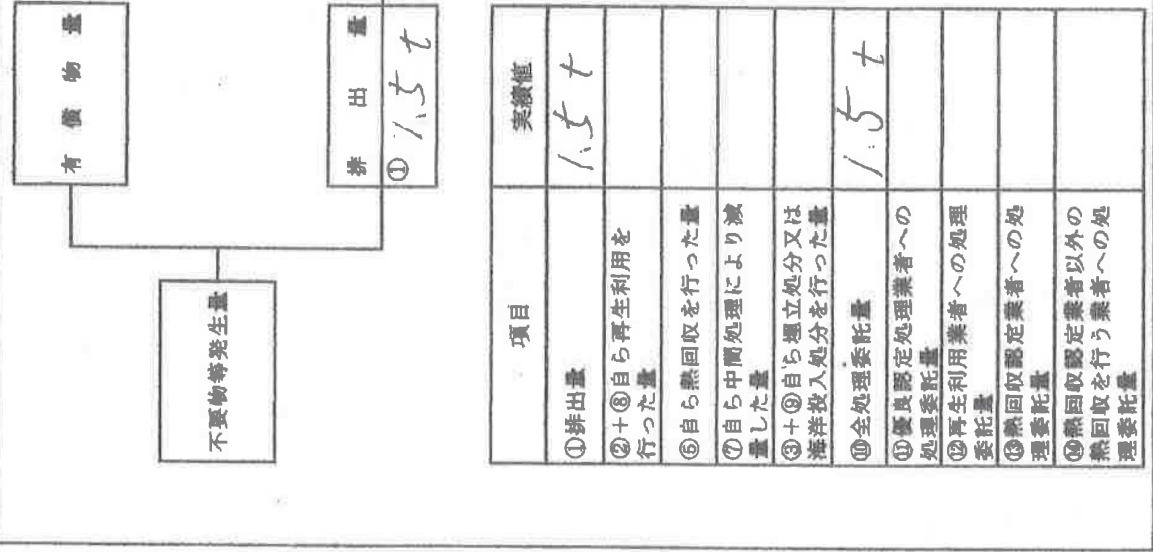 有償物量
不要物等発生量
排出量
① 1.5 t
項目
実績値
①排出量
1.5 t
②+⑧自ら再生利用を
行った量
⑥自ら熱回収を行った量
⑦自ら中間処理により減
量した量
③+⑨自ら埋立処分又は
海洋投入処分を行った量
⑩全処理委託量
1.5 t
⑪優良認定処理業者への
処理委託量
⑫再生利用業者への処理
委託量
⑬熱回収認定業者への処
理委託量
⑭熱回収認定業者以外の
熱回収を行う業者への処
理委託量